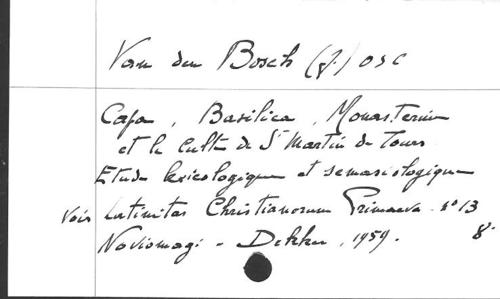 Van den Bosch (J.) OSC
Capa, Basilica, Monasterium
et le culte de St Martin de Tours
Etude lexicologique et semasiologique
Voir Latinitas Christianorum Primaeva. n° 13
Noviomagi - Dekker, 1959. 8°